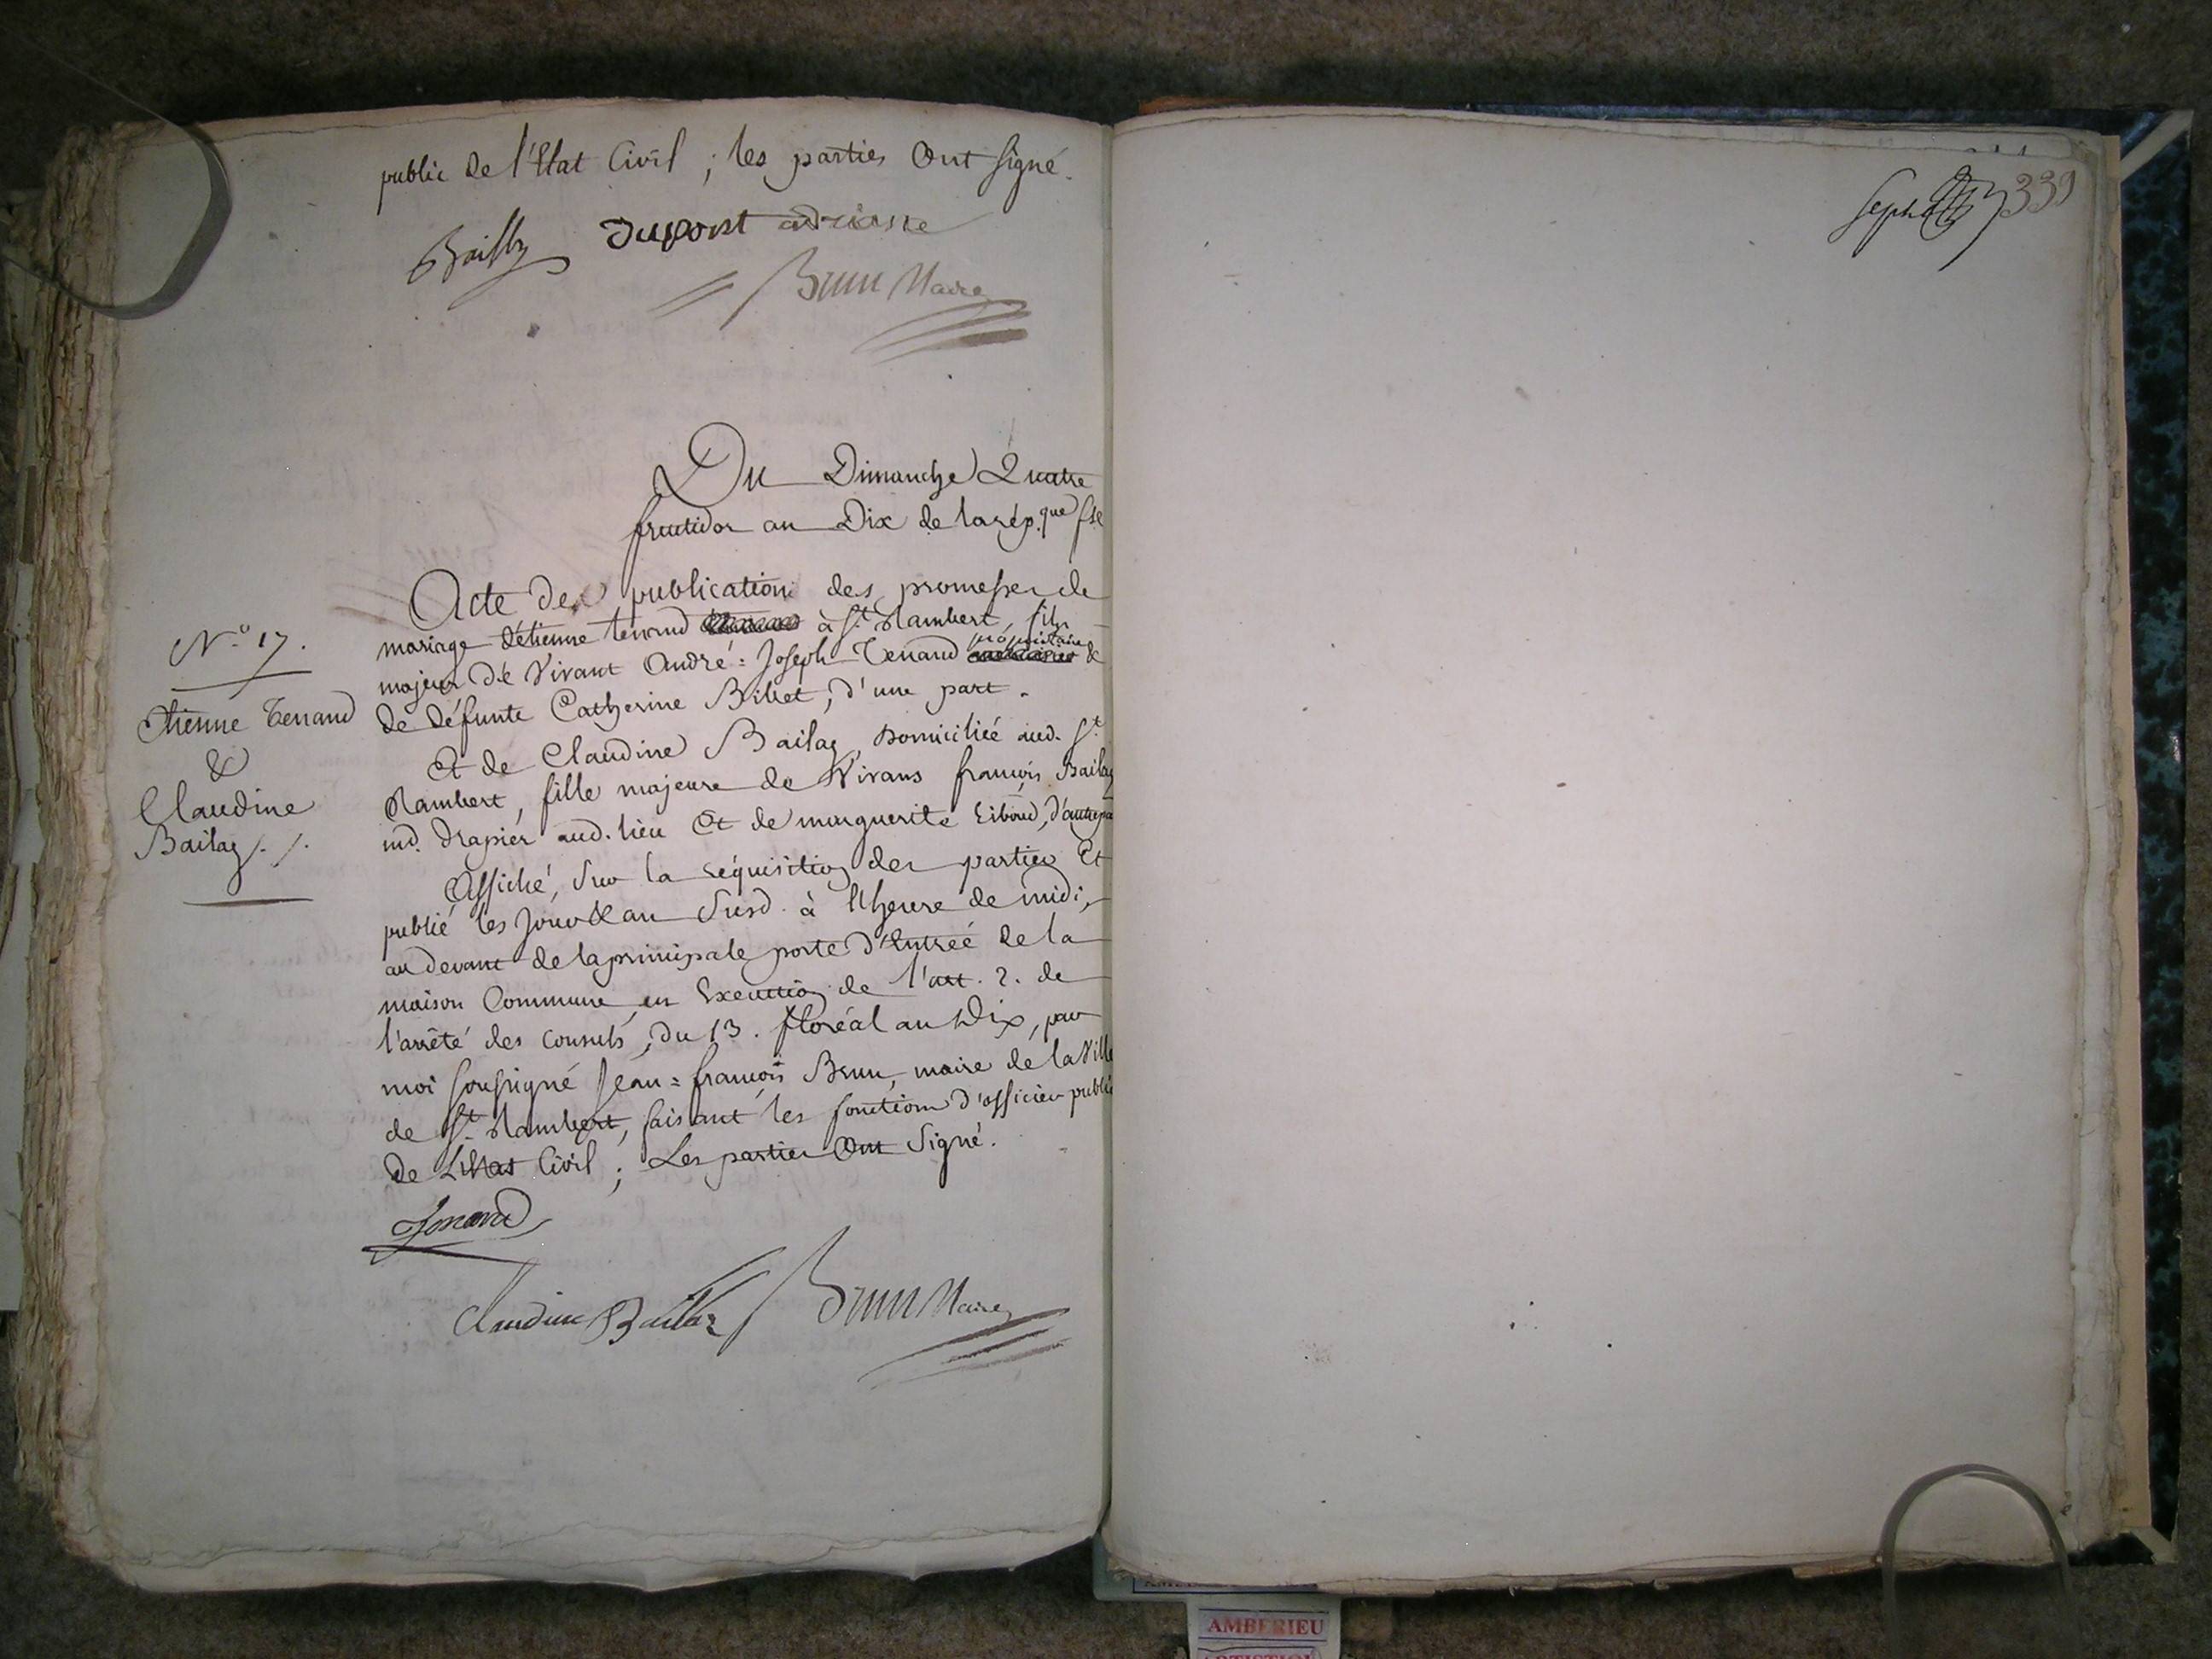 public de l'Etat Civil ; les parties Ont signé.
Bailly Dupont adrianne
Brun Maire
Du Dimanche Quatre
fructidor an Dix de la rép.que fse
N.o 17.
Etienne Tenand
&
Claudine
Bailaz /. /.
Acte de publication des promesses de
mariage d'étienne tenand à St. Rambert, fils
majeur de Vivant André = Joseph Tenand propriétaire &
de défunte Catherine Billet, d'une part.
Et de Claudine Bailaz, domiciliée aud. St.
Rambert, fille majeure de Vivans françois Bailaz
md. drapier aud. lieu Et de marguerite Liboud, d'autre pa
Affiché, sur la réquisition des parties Et
publié les Jour & an Susd. à l'heure de midi,
au devant de la principale porte d'Entrée de la
maison Commune, en Execution de l'art. 2. de
l'arrêté des consuls, du 13. floréal an Dix, par
moi soussigné Jean = françois Brun, maire de la Ville
de St. Rambert, faisant les fonctions d'officier public
de L'Etat Civil ; Les parties Ont Signé.
Tenand
Claudine Bailaz Brun Maire
339
AMBERIEU